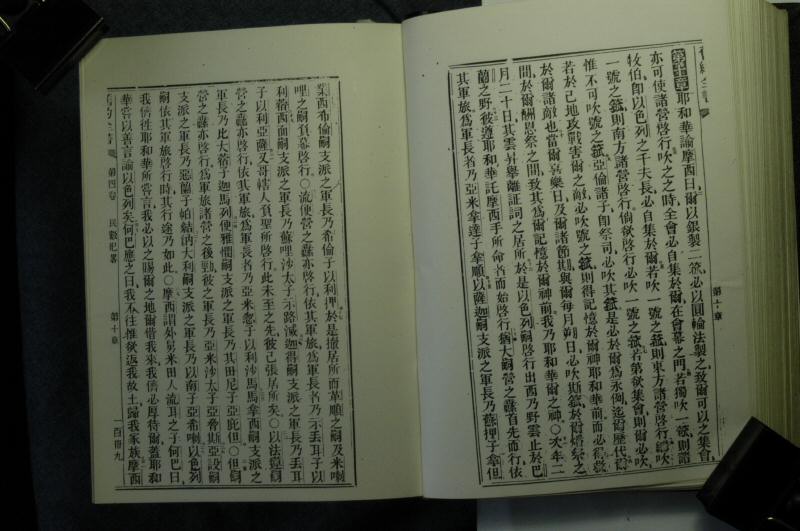 舊約全書
第十章
第十章耶和華諭摩西曰爾以銀製二號必以圓輪法製之致爾可以之集會
亦可使諸營啟行吹之之時全會必自集於爾在會幕之門若獨吹一號則諸
牧伯即以色列之千夫長必自集於爾若吹一號之號則東方諸營啟行爾吹
一號之號則南方諸營啟行倘欲啟行必吹一號之號若第欲集會則爾必吹
惟不可吹號之號亞倫諸子即祭司必吹其號是必於爾為永例迄爾歷代爾
若於己地攻戰害爾之敵必吹號之號則得記憶於爾神耶和華前而必得救
於爾諸敵也當爾喜樂日及爾諸節期與爾每月朔日必吹斯號於爾燔祭之
間於爾酬恩祭之間致其為爾記憶於爾神前我乃耶和華爾之神〇次年二
月二十日其雲昇舉離証詞之居所於是以色列嗣啟行出西乃野雲止於巴
蘭之野彼遵耶和華託摩西手所命者而始啟行猶大嗣營之纛首先而行依
其軍旅為軍長者乃亞米拿達子拿順以薩迦嗣支派之軍長乃蘇押子拿但
業西布倫嗣支派之軍長乃希倫子以利押於是撤居所而革順之嗣及米喇
哩之嗣負幕啟行〇流便營之纛亦啟行依其軍旅為軍長者乃示丟耳子以
利蓿西面嗣支派之軍長乃蘇哩沙太子示路滅迦得嗣支派之軍長乃丟耳
子以利亞薩又哥轄人負聖所啟行此未至之先彼已張居所矣〇以法蓮嗣
營之纛亦啟行依其軍旅為軍長者乃亞米忽子以利沙馬馬拿西嗣支派之
軍長乃比大蓿子迦馬列便雅憫嗣支派之軍長乃其田尼子亞庇但〇但嗣
營之纛亦啟行為軍旅諸營之後勁彼之軍長乃亞米沙太子亞希以謝亞設嗣
支派之軍長乃惡蘭子帕結納大利嗣支派之軍長乃以南子亞希喇以色列
嗣依其軍旅啟行時其行途乃如此〇摩西謂外舅米田人流耳之子何巴曰
我儕往耶和華所嘗言我必以之賜爾之地爾偕我來我儕必厚待爾蓋耶和
華嘗以善言諭以色列矣何巴應之曰我不往惟欲返我故土歸我家族摩西
第四卷 民數紀畧
第十章
一百卌九